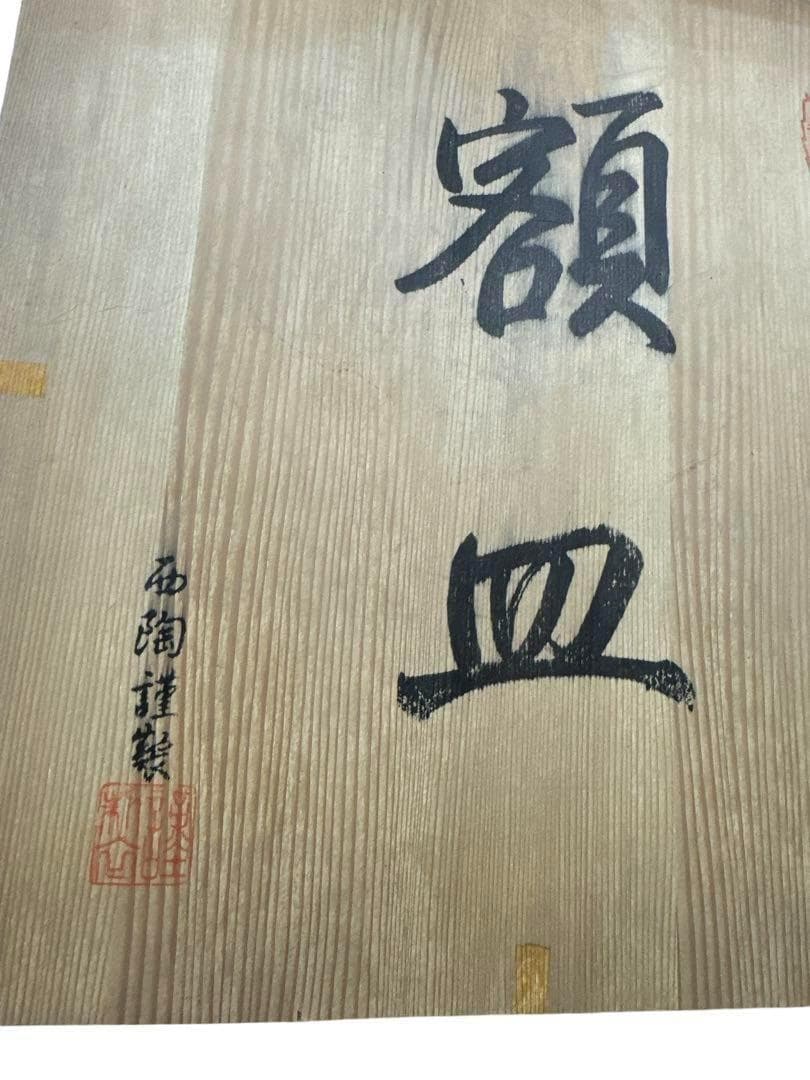 額皿
西陶謹製